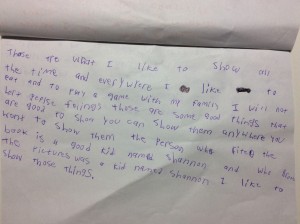 Those are what I like to show all
the time and everywhere I like to
eat and to play a game with my family I will not
hert felings those are some good things that
are good to show you can show them anywhere you
want to show them the person who the
book is a good kid named Shannon and who
the pictures was a kid named Shannon I like to
show those things.